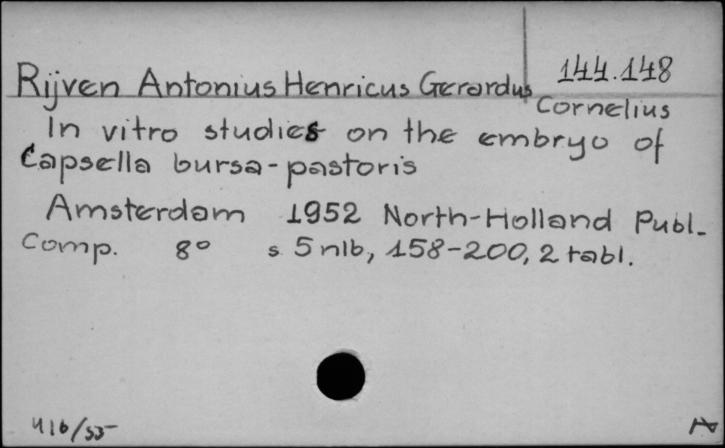 144.148
Rijven Antonius Henricus Gerardus
Cornelius
In vitro studies on the embryo of
Capsella bursa-pastoris
Amsterdam 1952 North-Holland Publ.
Comp. 8° s. 5 nlb, 158-200, 2 tabl.
416/55